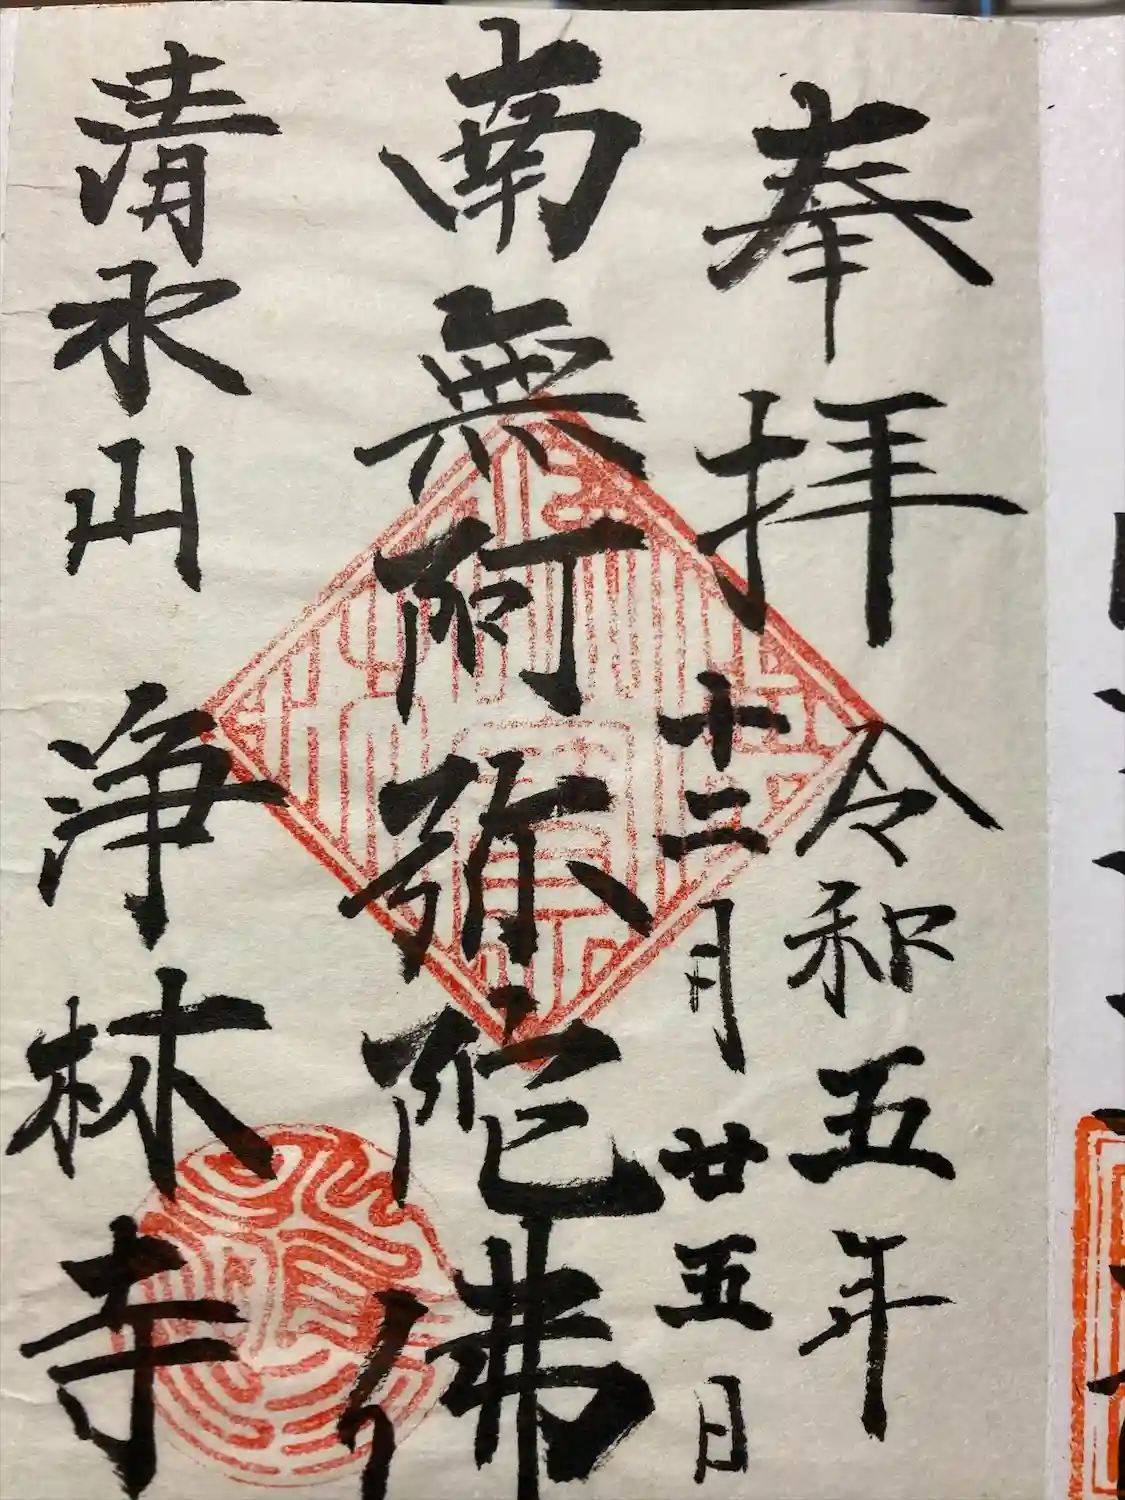 奉拝
令和五年
十二月廿五日
南無阿弥陀佛
清水山 浄林寺